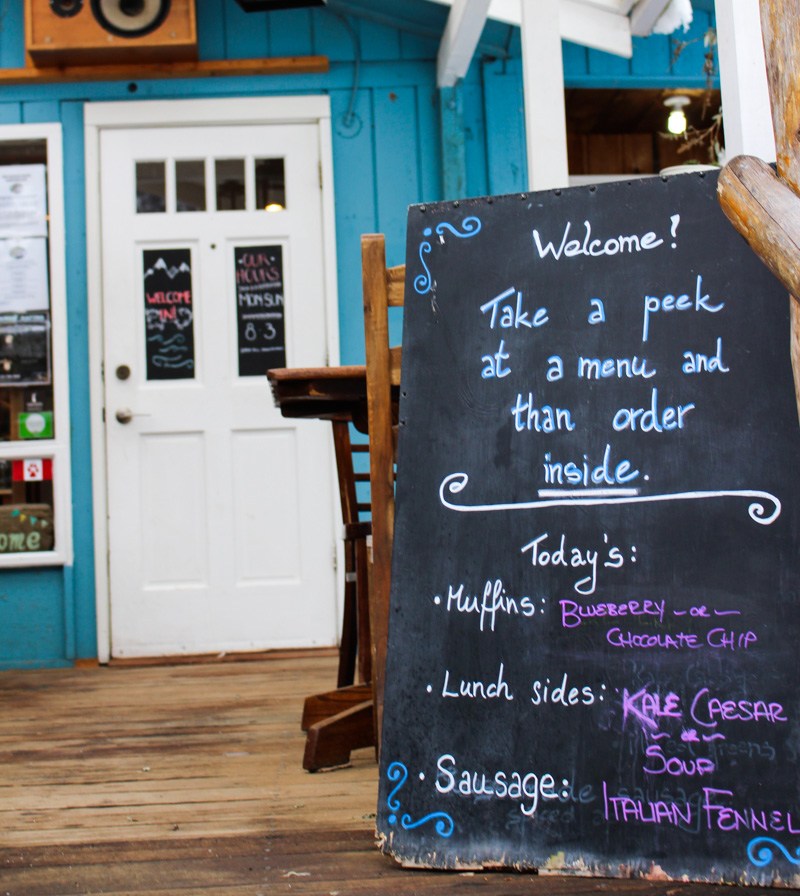 WELCOME
IN!
OUR
HOURS
MON-SUN
8-3
ome
Welcome!
Take a peek
at a menu and
than order
inside.
Today's:
• Muffins: BLUEBERRY -OR-
CHOCOLATE CHIP
• Lunch sides: KALE CAESAR
- OR -
SOUP
• Sausage: ITALIAN FENNEL